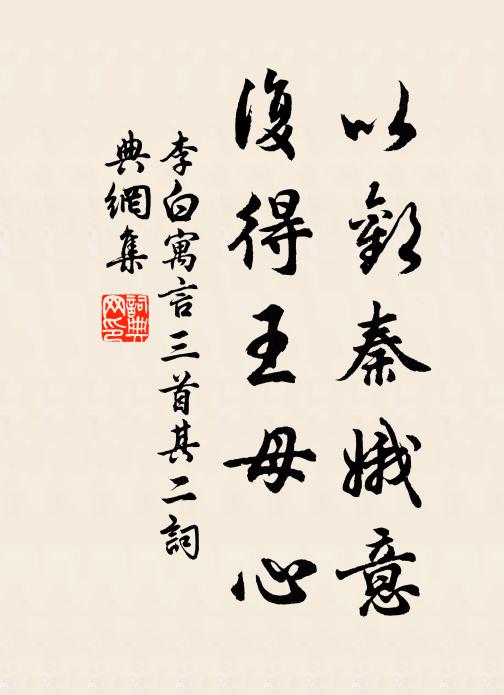 以歡秦娥意
復得王母心
李白寓言三首其二詞
典網集
詞典網印